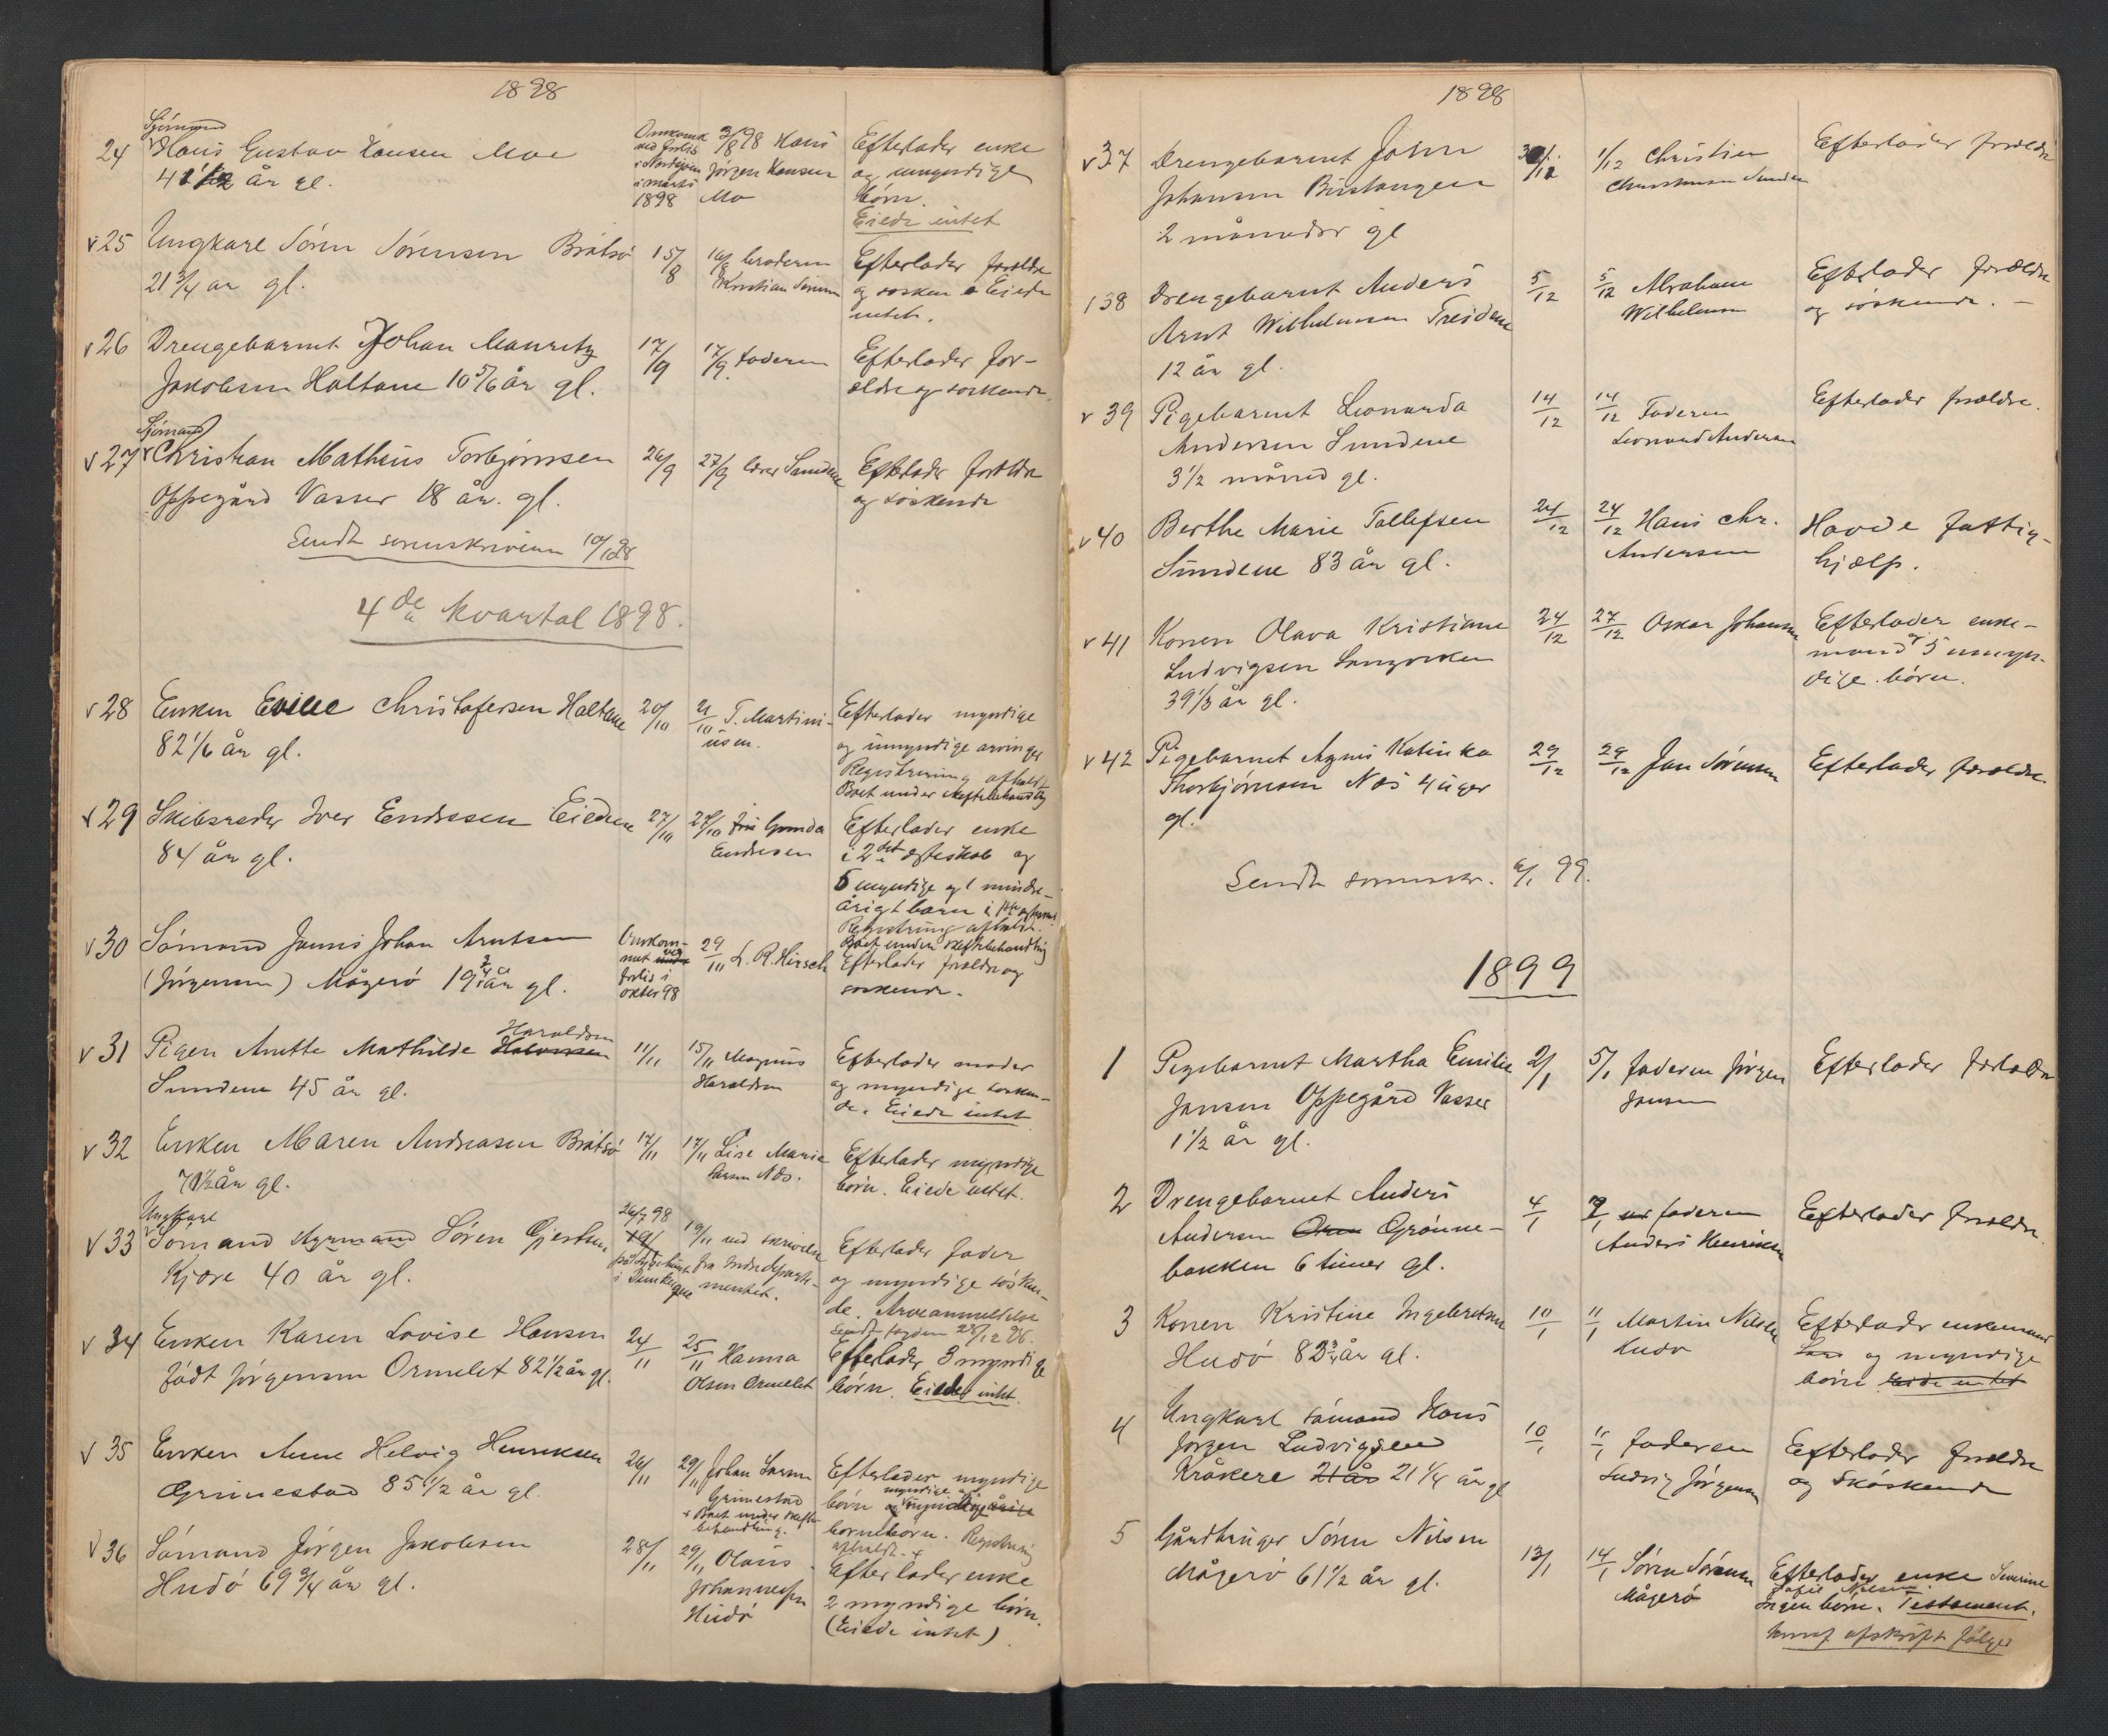 1898
Sjömand
24 Hans Gustav Hansen Moe
41 år gl.
Omkomk
ved forlis
i Nordsjöen
i marts
1898
3/8 98 Hans
Jörgen Hansen
Mo
Efterlader enke
og umyndige
börn.
Eiede intet
v 25 Ungkarl Sören Sörensen Bråtsö
21 3/4 år gl.
15/8
16/8 broderen
Kristian Sörensen
Efterlader forældre
og sösken Eiede
intet.
v 26 Drengebarnet Johan Mauritz
Jakobsen Haltane 10 5/6 år gl.
17/9
17/9. faderen
Efterlader for-
ældre og söskende.
Sjömand
v 27 Christian Mathius Torbjörnsen
Oppegård Vasser 18 år. gl.
26/9
27/9 lærer Sundene
Efterlader forældre
og söskende
Sendt sorenskriveren 10/10 98
4de kvartal 1898.
v 28 Enken Eville Christofersen Haltane
82 1/6 år gl.
20/10
21/10 T. Martini-
usen.
Efterlader myndige
og umyndige arvinger
Registrering afholdt
Boet under skiftebehandling
v 29 Skibsreder Iver Endresen Eidene
84 år gl.
27/10
27/10 fru Gunda
Endresen
Efterlader enke
i 2det ægteskab og
5 myndige og 1 mindre-
årigt barn i 1ste ægteskab
Registrering afholdt.
Boet under skiftebehandling
v 30 Sömand Jamis Johan Arntsen
(Jörgensen) Mågerö 19 3/4 år gl.
Omkom-
met ved
forlis i
oktbr 98
29/10 L. R. Hirsch
Efterlader forældre og
söskende.
v 31 Pigen Anette Mathilde Haraldsen
Sundene 45 år gl.
11/11
15/11 Magnus
Haraldsen
Efterlader moder
og myndige sösken-
de. Eiede intet
v 32 Enken Maren Andreasen Bråtsö
70 1/2 år gl.
17/11
17/11 Lise Marie
Larsen Næs.
Efterlader myndige
börn. Eiede intet.
Ungkarl
v 33 Sömand Nyrmand Sören Gjertsen
Kjære 40 år gl.
26/7 98
på Sygehuset
i Dunkerque
19/11 ved skrivelse
fra Indredeparte-
mentet.
Efterlader fader
og myndige sösken-
de. Arveanmeldelse
Sendt fogden 28/12 06.
v 34 Enken Karen Lovise Hansen
födt Jörgensen Ormelet 82 1/2 år gl.
24/11
25/11 Hanna
Olsen Ormelet
Efterlader 3 myndige
börn. Eiede intet.
v 35 Enken Anne Helvig Henriksen
Grimestad 85 1/2 år gl.
26/11
29/11 Johan Larsen
Grimestad
+ Boet under skifte-
behandling.
Efterlader myndige
myndige og
börn og umyndige
börnebörn. Registrering
afholdt. +
v 36 Sömand Jörgen Jakobsen
Hudö 69 3/4 år gl.
28/11
29/11 Olaus
Johannesen
Hudö
Efterlader enke
2 myndige börn.
(Eiede intet)
1898
v 37 Drengebarnet Johan
Johansen Buistangen
2 måneder gl
1/12 Christian
Christensen Sundene
Efterlader forældre
v 38 Drengebarnet Anders
Arnt Wilhelmsen Treidene
12 år gl.
5/12
5/12 Abraham
Wilhelmsen
Efterlader forældre
og söskende. -
v 39 Pigebarnet Leonarda
Andersen Sundene
3 1/2 måned gl.
14/12
14/12 Faderen
Leonard Andersen
Efterlader forældre.
v 40 Berthe Marie Tollefsen
Sundene 83 år gl.
24/12
24/12 Hans Chr.
Andersen
Havde fattig-
hjælp.
v 41 Konen Olava Kristiane
Ludvigsen Langviken
39 1/3 år gl.
24/12
27/12 Oskar Johansen
Efterlader enke-
mand og 5 umyn-
dige börn.
v 42 Pigebarnet Agnes Katinka
Thorbjörnsen Næs 4 uger
gl.
29/12
29/12 Jan Sörensen
Efterlader forældre
Sendt sorenskr. 6/1 99.
1899
1 Pigebarnet Martha Emilie
Jansen Oppegård Vasser
1 1/2 år gl.
2/1
5/1 faderen Jörgen
Jansen
Efterlader forældre
2 Drengebarnet Anders
Andersen Grönne-
bakken 6 timer gl.
4/1
7/1 faderen
Anders Henriksen
Efterlader forældre.
3 Konen Kristine Ingebretsen
Hudö 82 3/4 år gl.
10/1
11/1 Martin Nilsen
Hudö
Efterlader enkemand
og myndige
börn Eiede intet
4 Ungkarl sömand Hans
Jörgen Ludvigsen
Kråkere 21 år 21 1/4 år gl
10/1
11/1 faderen
Ludvig Jörgensen
Efterlader forældre
og Sköskende
5 Gårdbruger Sören Nilsen
Mågerö 61 1/2 år gl.
13/1
14/1 Sören Sörensen
Mågerö
Efterlader enke Severine
Sofie Nilsen.
Ingen börn. Testament,
hvoraf afskrift fölger